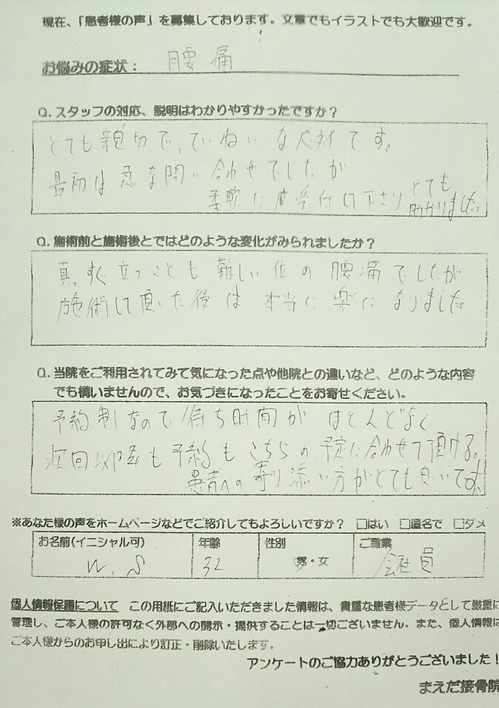 現在、「患者様の声」を募集しております。文章でもイラストでも大歓迎です。
お悩みの症状： 腰痛
Q. スタッフの対応、説明はわかりやすかったですか？
とても親切で、ていねいな応対です。
最初は急な問い合わせでしたが
柔軟に受付けて下さり とても
助かりました。
Q. 施術前と施術後とではどのような変化がみられましたか？
真すぐ立つことも難しい位の腰痛でしたが
施術して頂いた後は本当に楽になりました。
Q. 当院をご利用されてみて気になった点や他院との違いなど、どのような内容
でも構いませんので、お気づきになったことをお寄せください。
予約制なので待ち時間がほとんどなく
次回以降も予約もこちらの予定に合わせて頂ける。
患者への寄り添い方がとても良いです。
※あなた様の声をホームページなどでご紹介してもよろしいですか？ □はい □匿名で □ダメ
お名前(イニシャル可) 年齢 性別 ご職業
W.S 32 男・女 会社員
個人情報保護について この用紙にご記入いただきました情報は、貴重な患者様データとして厳重に
管理し、ご本人様の許可なく外部への開示・提供することは一切ございません。また、個人情報は
ご本人様からのお申し出により訂正・削除いたします。
アンケートのご協力ありがとうございました！
まえだ接骨院